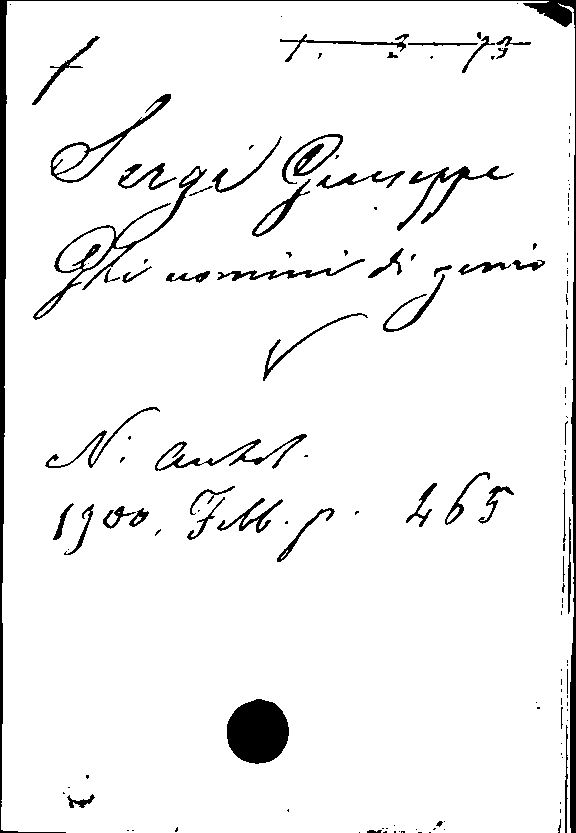 1. 3. 73
Sergi Giuseppe
Gli uomini di genio
N. Antol.
1900, Febb. p. 465